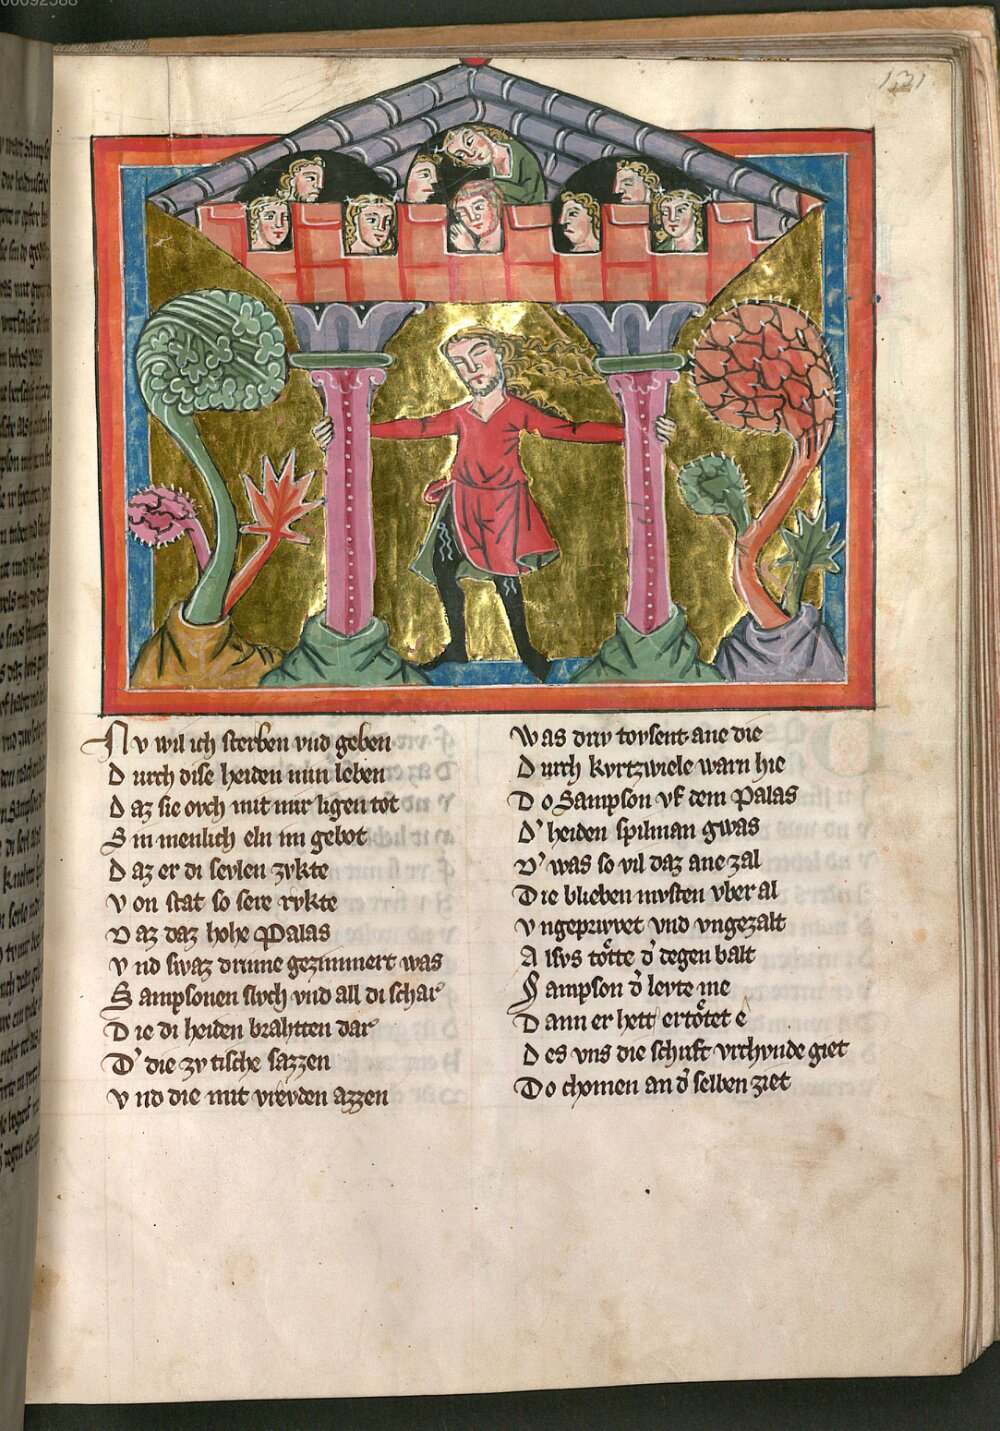 00092588
131
Nv wil ich sterben vnd geben
Dvrch dise heiden min leben
Daz sie ovch mit mir ligen tot
Sin menlich eln im gebot
Daz er di sevlen zvkte
Von stat so sere rvkte
Daz daz hohe Palas
Vnd swaz drinne gezimmert was
Sampsonen slvch vnd all di schar
Die di heiden brahtten dar
D' die zv tische sazzen
Vnd die mit vrevden azzen
Was driv tovsent ane die
Dvrch kvrtzwiele warn hie
Do Sampson vf dem Palas
D' heiden spilman gwas
D' was so vil daz ane zal
Die blieben mvsten vber al
Vngeprvvet vnd vngezalt
Alsvs tötte d' degen balt
Sampson d' levte me
Dann er hett ertötet e
Des vns die schrift vrchvnde giet
Do chomen an d' selben ziet